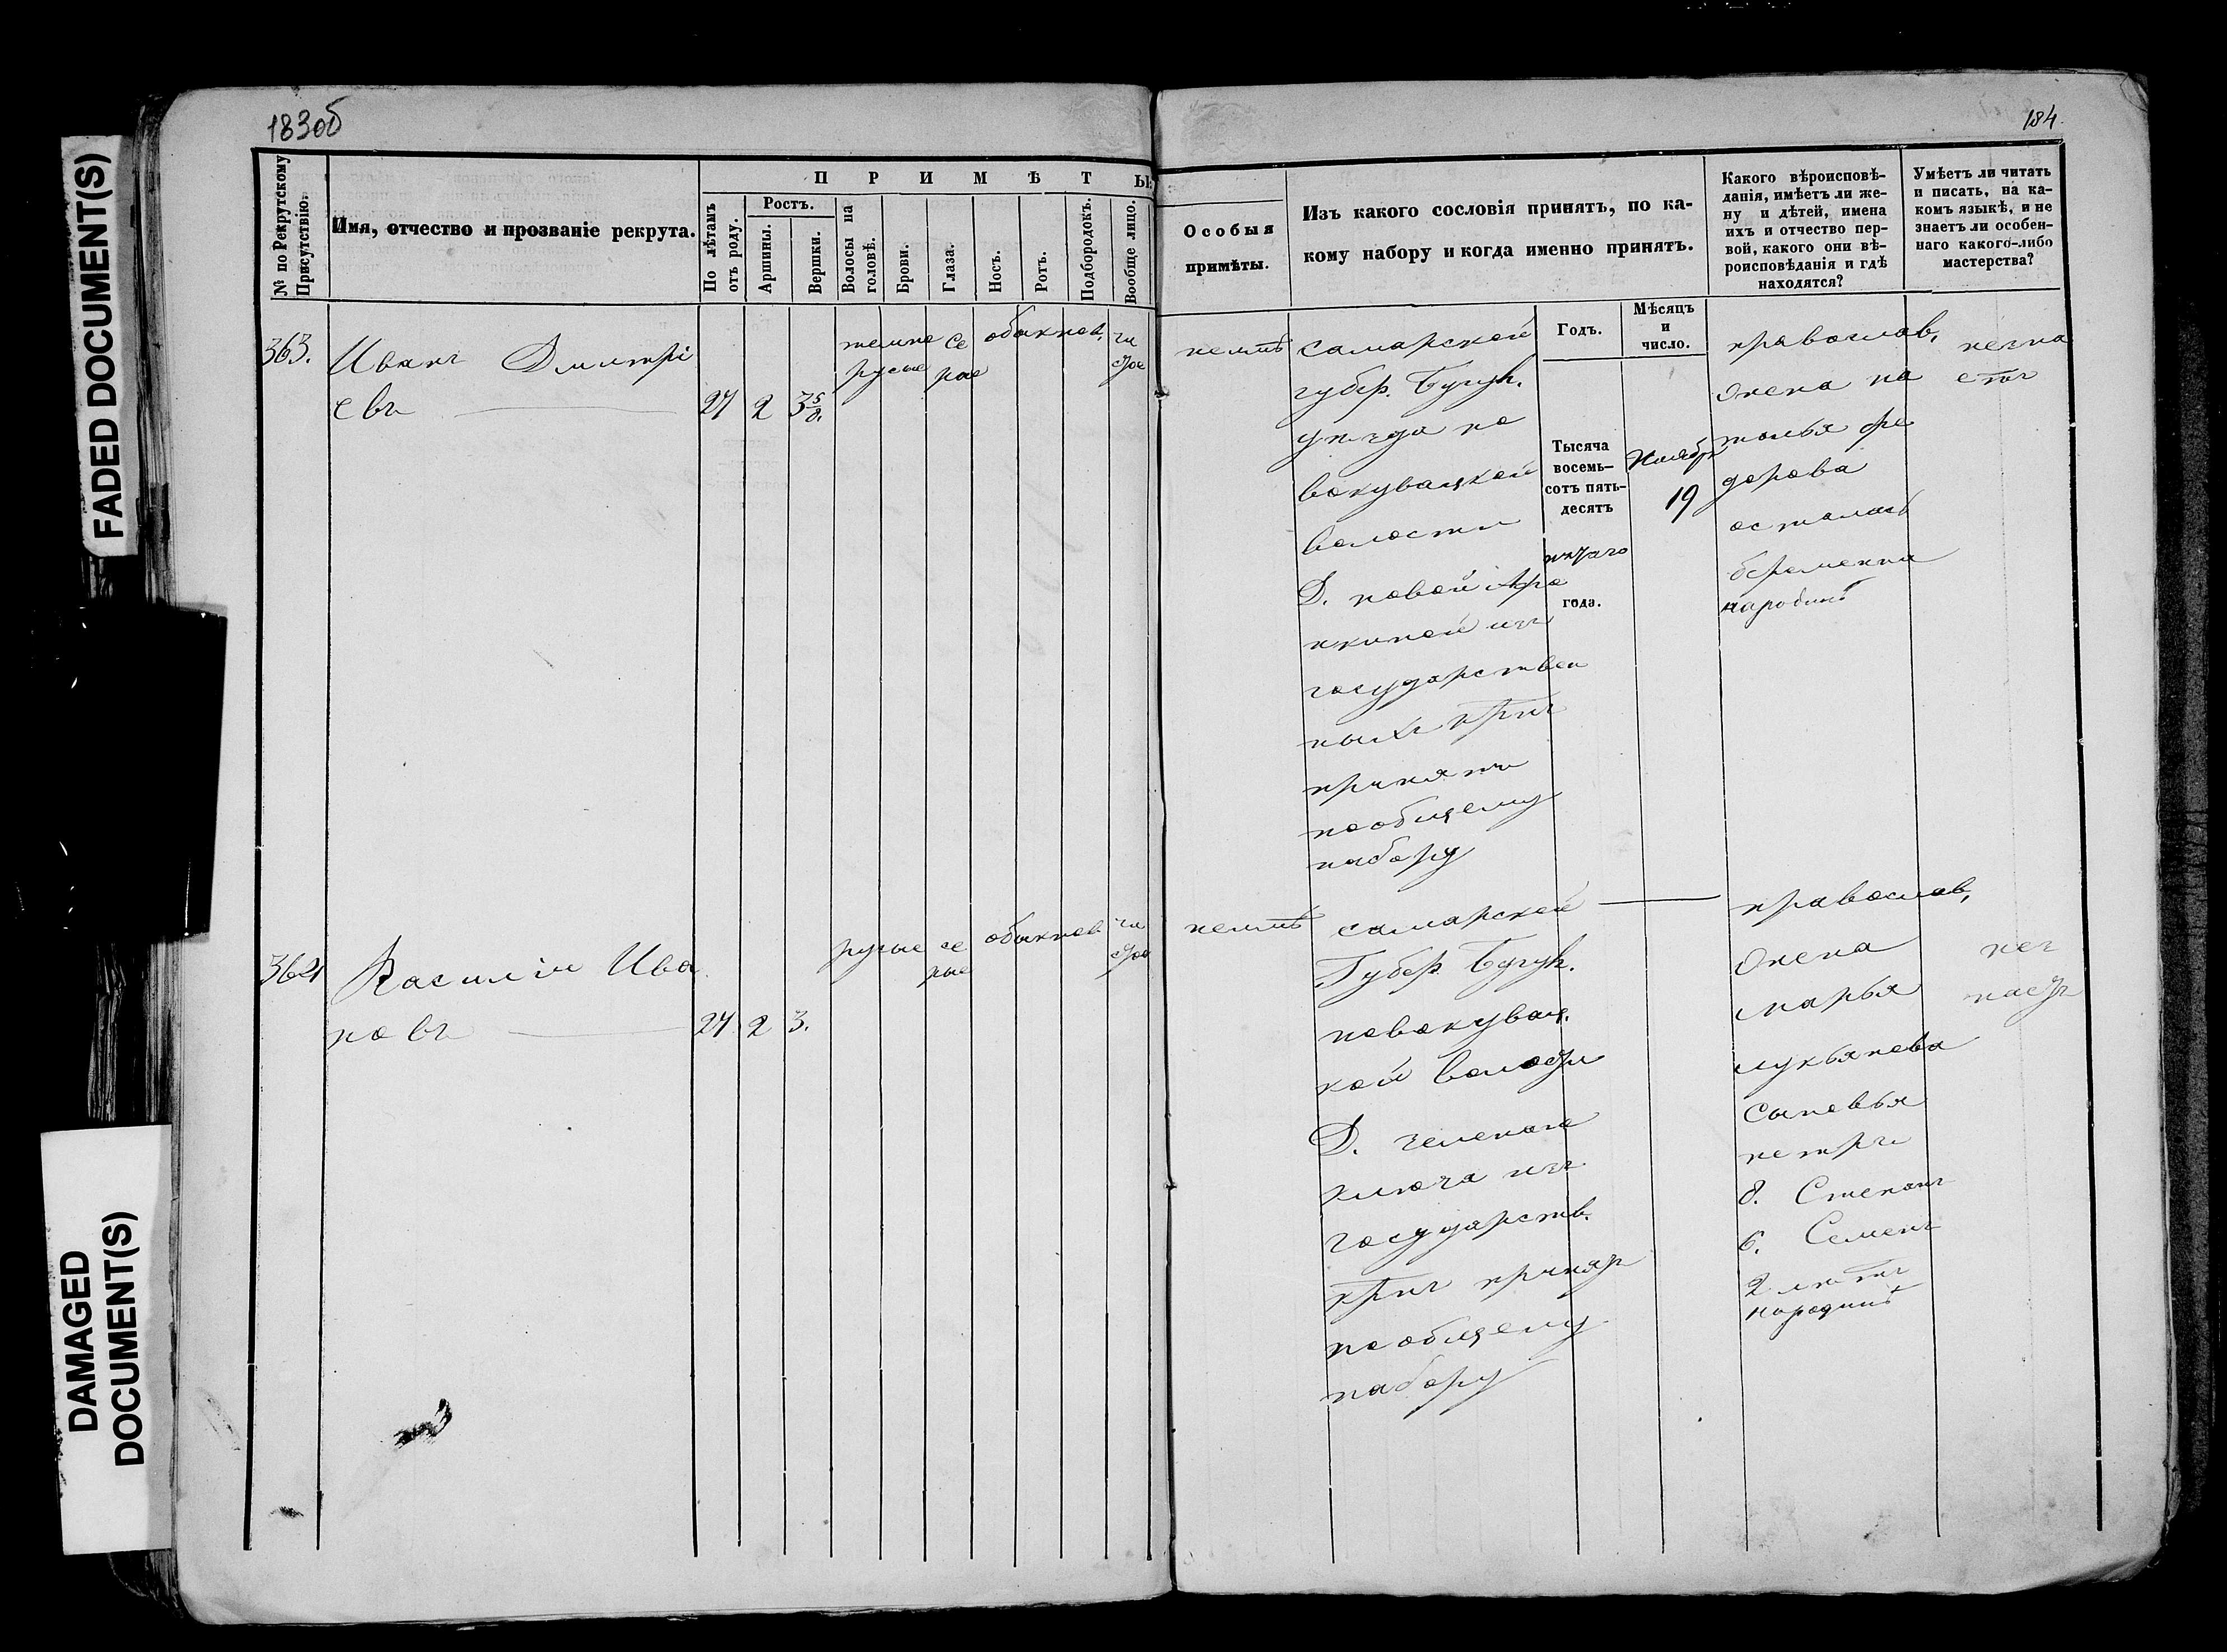 FADED DOCUMENT(S)
DAMAGED
DOCUMENT(S)
183об
184
№ по Рекрутскому
Присутствію.
Имя, отчество и прозваніе рекрута.
ПРИМѢТЫ
По лѣтамъ
отъ роду.
Ростъ.
Аршины.
Вершки.
Волосы на
головѣ.
Брови.
Глаза.
Носъ.
Ротъ.
Подбородокъ.
Вообще лицо.
Особыя
примѣты.
Изъ какого сословія принятъ, по ка-
кому набору и когда именно принятъ.
Годъ.
Мѣсяцъ
и
число.
Какого вѣроисповѣ-
данія, имѣетъ ли же-
ну и дѣтей, имена
ихъ и отчество пер-
вой, какого они вѣ-
роисповѣданія и гдѣ
находятся?
Умѣетъ ли читать
и писать, на ка-
комъ языкѣ, и не
знаетъ ли особен-
наго какого-либо
мастерства?
363.
Иванъ Дмитрі
евъ
27 2 3 5/8.
темно
русые
се
рые
обыкнов.
чи
стое
неимѣ
самарской
губер. Бугул.
уезда но
вокувацкой
волости
Д. новой
изъ
государствен
ныхъ
принятъ
пообщему
набору
Тысяча
восемь-
сотъ пять-
десятъ
года.
Ноябр
19
православ.
жена на
талья фе
дорова
осталась
беременна
народинѣ
364
Василій Ива
новъ
27 2 3.
русые
се
рые
обыкнов
чи
стое
неимѣ
самарской
Губер. Бугул.
новокувац.
кой волости
Д. зеленаго
ключа изъ
государств.
пообщему
набору
православ.
жена
марья
лукьянова
сыновья
петръ
8. Степанъ
6. Семенъ
2 лѣтъ
народинѣ